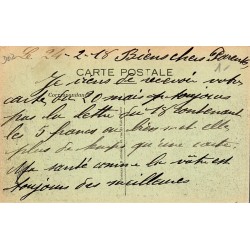 Le 24-2-18 Bien chers Parents
CARTE POSTALE
Je viens de recevoir votre
Correspondance
carte du 20 mais toujours
pas la lettre du 18 contenant
les 5 francs au bien met elle
plus de temps qu'une carte.
Ma santé comme la vôtre est
toujours des meilleures